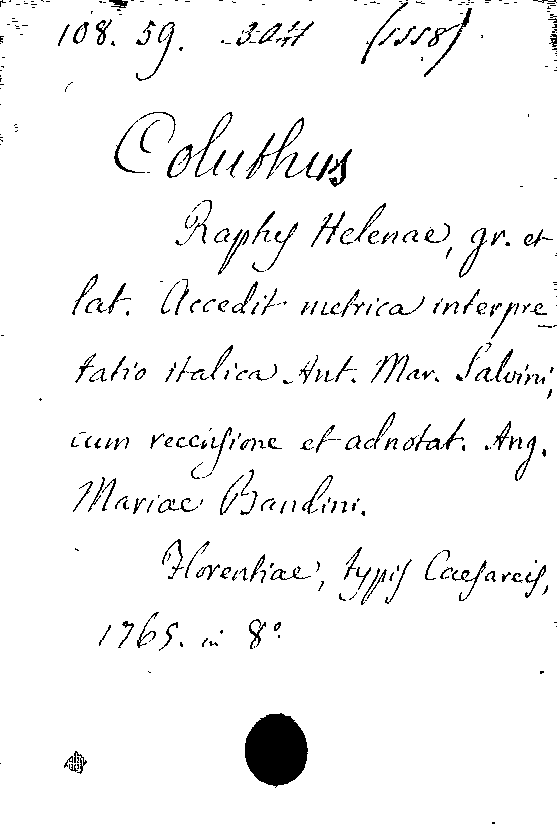 108. 59. (1558)
Coluthus
Raphys Helenae, gr. et
lat. Accedit metrica interpre
tatio italica Ant. Mar. Salvini,
cum recensione et adnotat. Ang.
Mariae Bandini.
Florentiae, typis Caesareis,
1765. in 8°.